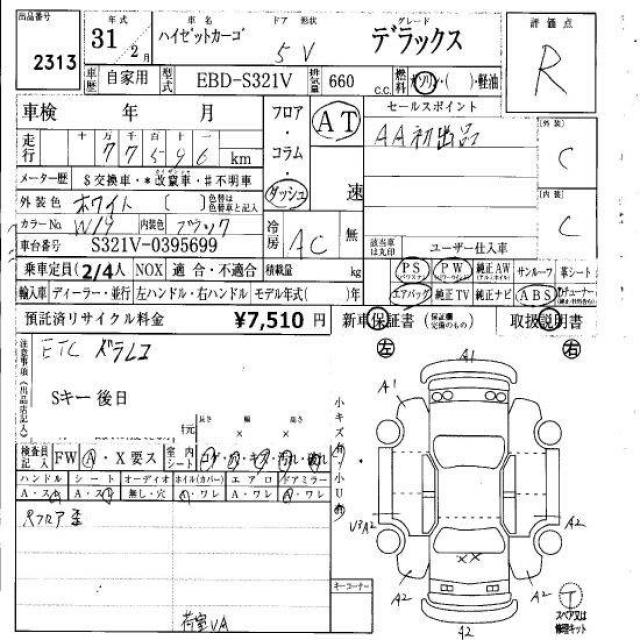 出品番号 年式 車名 ドア 形状 グレード 評価点
2313 31 2月 ハイゼットカーゴ 5V デラックス R
車歴 自家用 型式 EBD-S321V 排気量 660 c.c. 燃料 ガソリン・( )・軽油
車検 年 月 フロア・コラム・ダッシュ AT 速 セールスポイント
走行 十 万 千 百 十 一 AA初出品 【外装】 C
77596 km
メーター歴 $交換車・*改竄車・#不明車
外装色 ホワイト ( ) 色替は色替車と記入 【内装】 C
カラーNo W19 内装色 ブラック 冷房 AC 無
車台番号 S321V-0395699 該当車は丸印 ユーザー仕入車
乗車定員 2/4人 NOX 適合・不適合 積載量 kg PS PW 純正AW サンルーフ 革シート
輸入車 ディーラー・並行 左ハンドル・右ハンドル モデル年式( )年 エアバッグ 純正TV 純正ナビ ABS
預託済リサイクル料金 ¥7,510 円 新車保証書 (保証欄完備のもの) 取扱説明書
注意事項(出品店記入) ETC ドラレコ 左 右
Sキー後日
長さ 幅 高さ
× ×
検査員記入 FW A・X要ス 室内シート コゲ・穴・キズ・汚れ・破れ
ハンドル シート オーディオ ホイル(カバー) エアロ ドアミラー
A・ス A・ス 無し・穴 A・ワレ A・ワレ A・ワレ
荷室UA
キーコーナー
A1
A1
V3A2 A2
A2 A2
A2
T
スペア又は修理キット